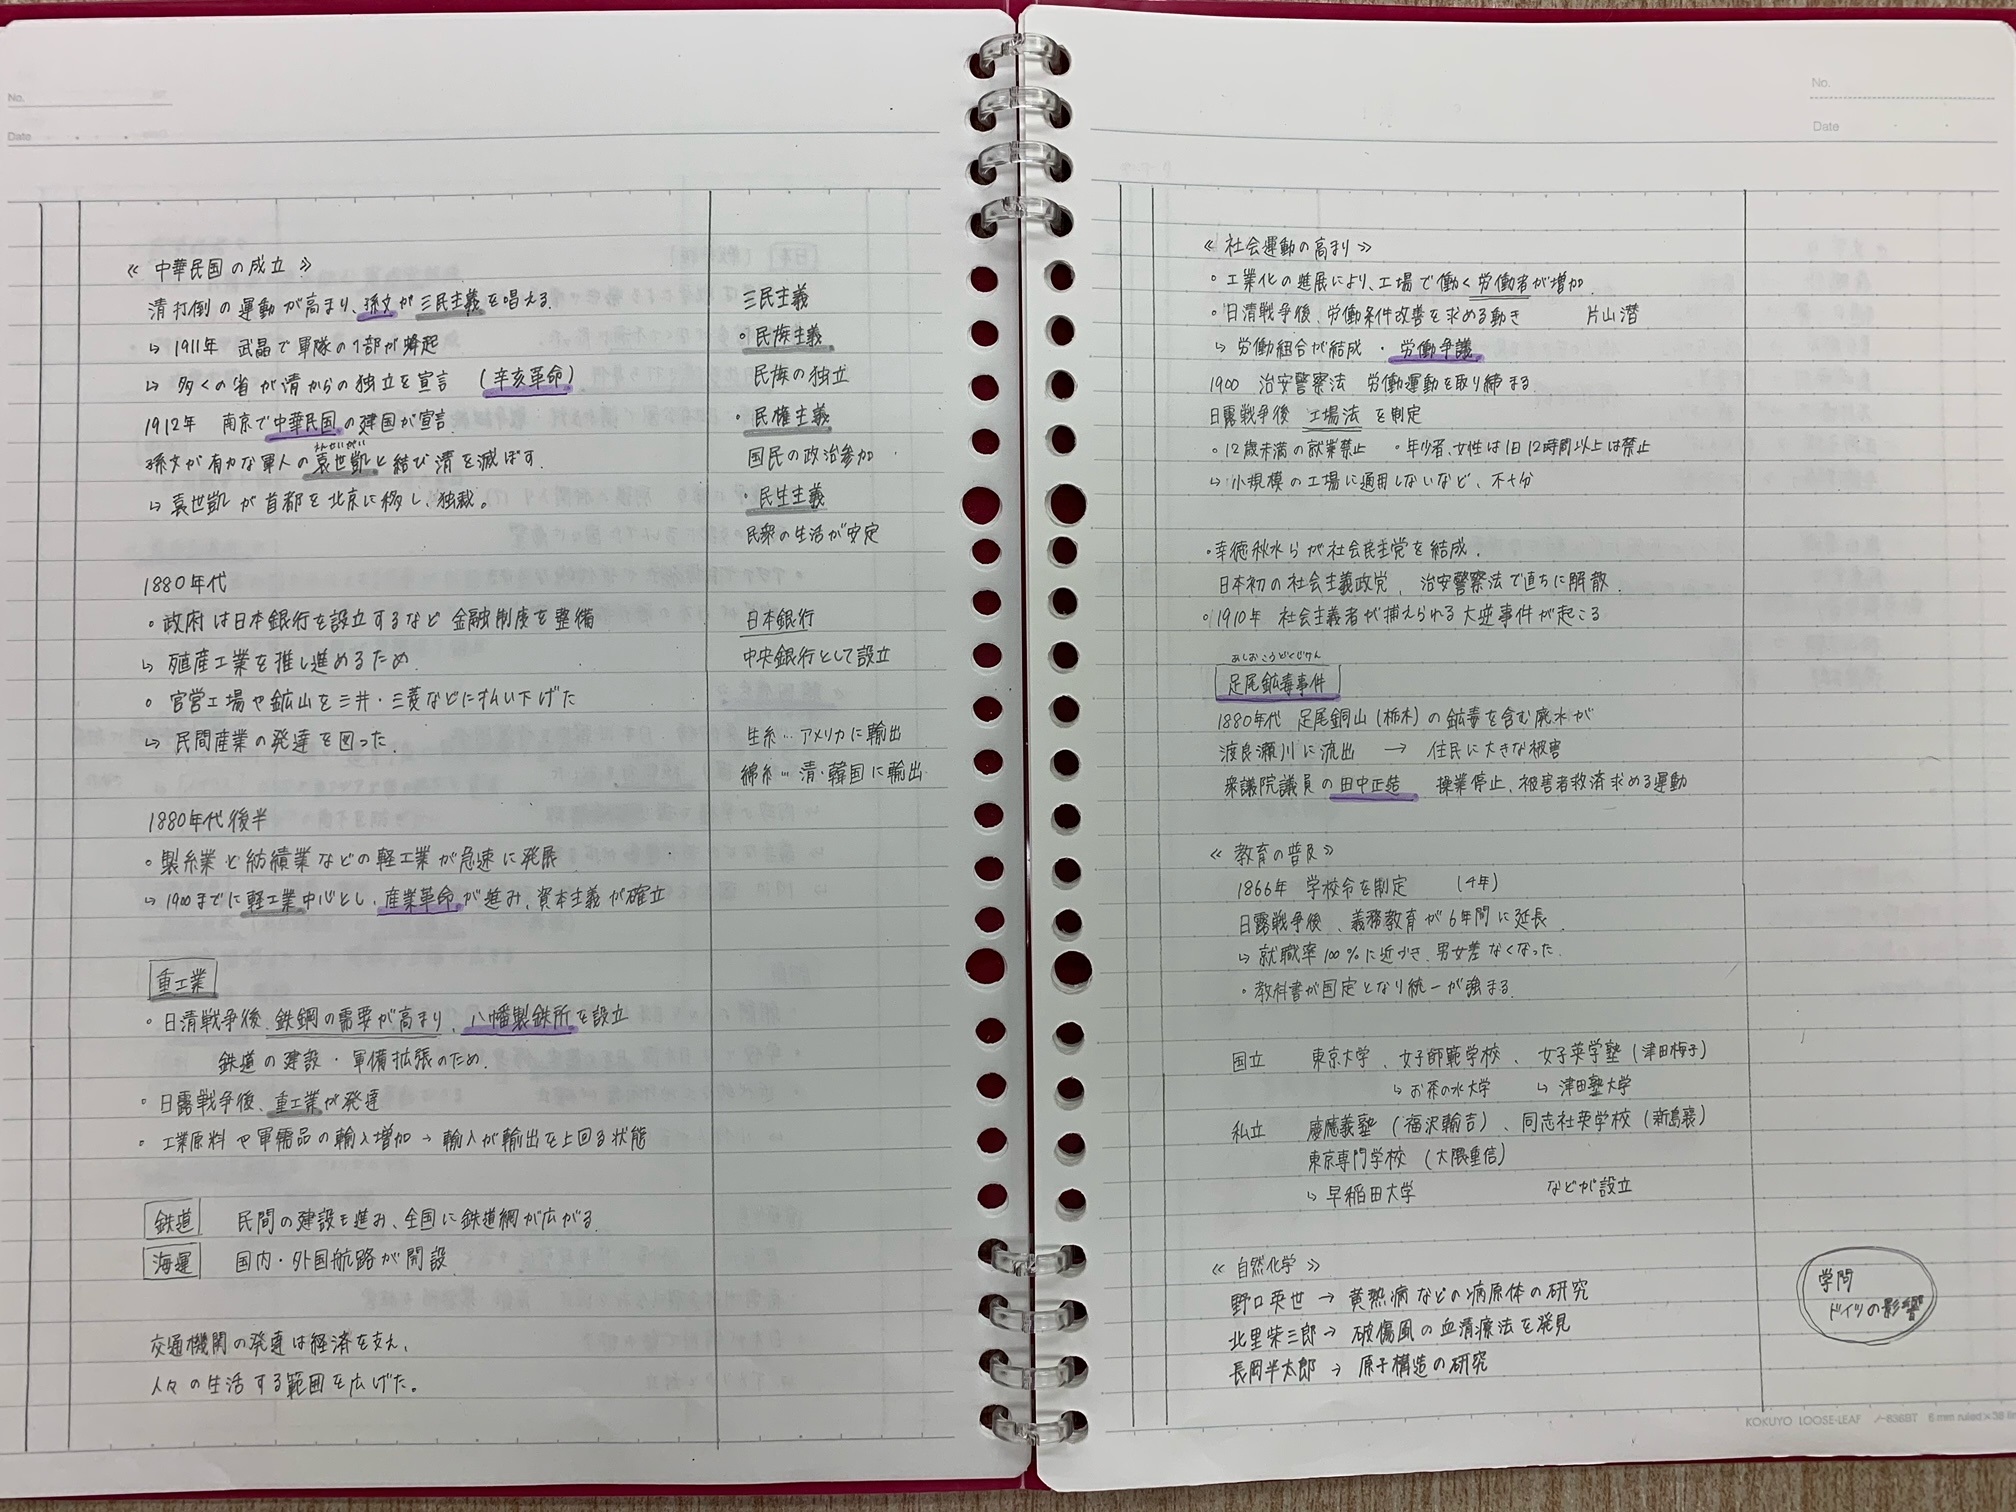 No.
Date
《 中華民国の成立 》
清打倒の運動が高まり、孫文が三民主義を唱える.
↳ 1911年 武昌で軍隊の1部が蜂起
↳ 多くの省が清からの独立を宣言 (辛亥革命)
1912年 南京で中華民国の建国が宣言.
えんせいがい
孫文が有力な軍人の袁世凱と結び清を滅ぼす.
↳ 袁世凱が首都を北京に移し、独裁。
1880年代
・政府は日本銀行を設立するなど金融制度を整備
↳ 殖産工業を推し進めるため.
・官営工場や鉱山を三井・三菱などに払い下げた
↳ 民間産業の発達を図った.
1880年代後半
・製糸業と紡績業などの軽工業が急速に発展
↳ 1900までに軽工業中心とし、産業革命が進み、資本主義が確立
重工業
・日清戦争後、鉄鋼の需要が高まり、八幡製鉄所を設立
鉄道の建設・軍備拡張のため.
・日露戦争後、重工業が発達
・工業原料や軍需品の輸入増加 → 輸入が輸出を上回る状態
鉄道 民間の建設も進み、全国に鉄道網が広がる.
海運 国内・外国航路が開設
交通機関の発達は経済を支え、
人々の生活する範囲を広げた。
三民主義
・民族主義
民族の独立
・民権主義
国民の政治参加
・民生主義
民衆の生活が安定
日本銀行
中央銀行として設立
生糸… アメリカに輸出
綿糸… 清・韓国に輸出
No.
Date
《 社会運動の高まり 》
・工業化の進展により、工場で働く労働者が増加.
・日清戦争後、労働条件改善を求める動き 片山潜
↳ 労働組合が結成・労働争議
1900 治安警察法 労働運動を取り締まる.
日露戦争後 工場法を制定
・12歳未満の就業禁止 ・年少者、女性は1日12時間以上は禁止
↳ 小規模の工場に適用しないなど、不十分
・幸徳秋水らが社会民主党を結成.
日本初の社会主義政党、治安警察法で直ちに解散.
・1910年 社会主義者が捕えられる大逆事件が起こる
あしおこうどくじけん
足尾鉱毒事件
1880年代 足尾銅山(栃木)の鉱毒を含む廃水が
渡良瀬川に流出 → 住民に大きな被害
衆議院議員の田中正造 操業停止、被害者救済求める運動
《 教育の普及 》
1866年 学校令を制定 (4年)
日露戦争後、義務教育が6年間に延長.
↳ 就職率100%に近づき、男女差なくなった.
・教科書が国定となり統一が強まる.
国立 東京大学、女子師範学校、女子英学塾(津田梅子)
↳ お茶の水大学 ↳ 津田塾大学
私立 慶應義塾(福沢輸吉)、同志社英学校(新島襄)
東京専門学校(大隈重信)
↳ 早稲田大学 などが設立
《 自然化学 》
野口英世 → 黄熱病などの病原体の研究
北里柴三郎 → 破傷風の血清療法を発見
長岡半太郎 → 原子構造の研究
学問
ドイツの影響
KOKUYO LOOSE-LEAF ノ-836BT 6 mm ruled×36